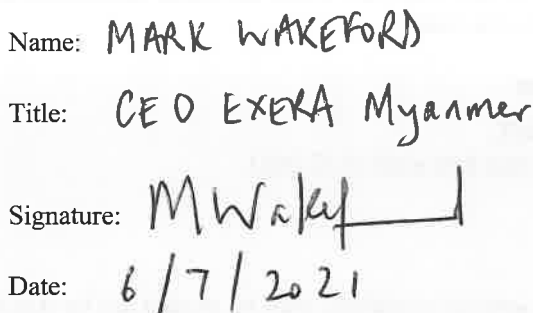 Name: MARK WAKEFORD
Title: CEO EXERA Myanmer
Signature: MWakef____d
Date: 6/7/2021